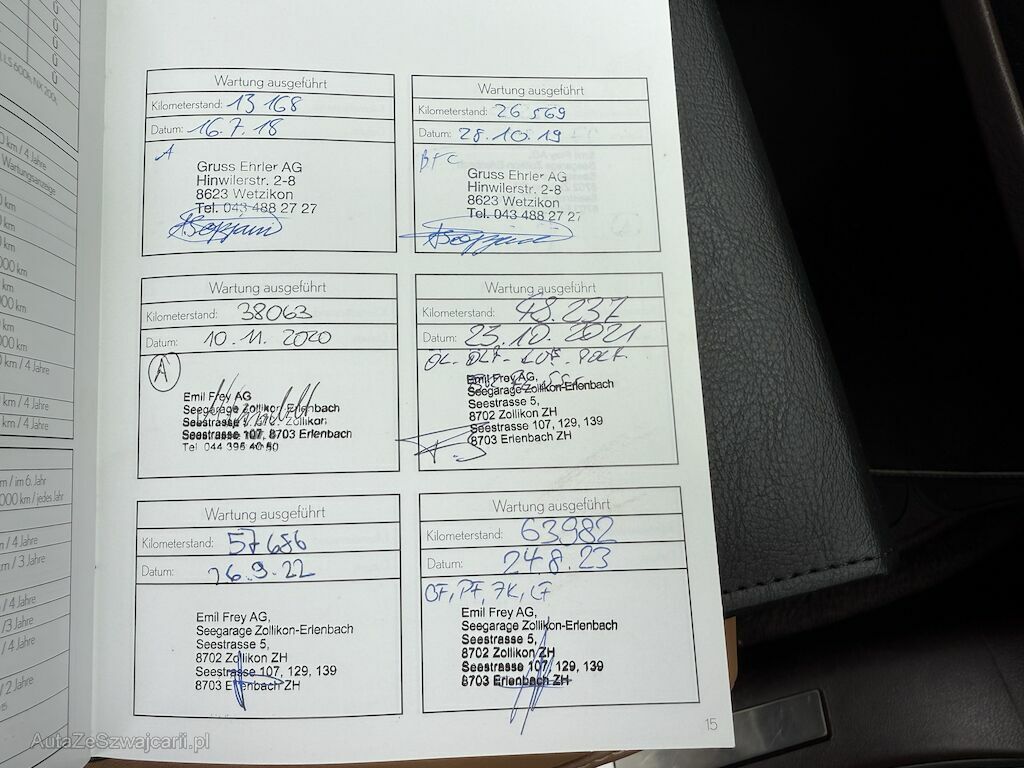 LS 600h, NX 200t,
0 km / 4 Jahre
Wartungsanzeige
km / 4 Jahre
km / 4 Jahre
km / 4 Jahre
m / im 6. Jahr
000 km / jedes Jahr
/ 4 Jahre
km / 3 Jahre
/ 4 Jahre
/3 Jahre
/ 4 Jahre
/ 2 Jahre
Wartung ausgeführt
Kilometerstand: 13 168
Datum: 16.7.18
A
Gruss Ehrler AG
Hinwilerstr. 2-8
8623 Wetzikon
Tel. 043 488 27 27
Wartung ausgeführt
Kilometerstand: 26 569
Datum: 28.10.19
BFC
Gruss Ehrler AG
Hinwilerstr. 2-8
8623 Wetzikon
Tel. 043 488 27 27
Wartung ausgeführt
Kilometerstand: 38063
Datum: 10.11.2020
A
Emil Frey AG
Seegarage Zollikon-Erlenbach
Seestrasse Zollikon
Seestrasse 107, 8703 Erlenbach
Tel 044 396 40 50
Wartung ausgeführt
Kilometerstand: 48.237
Datum: 23.10.2021
Emil Frey AG,
Seegarage Zollikon-Erlenbach
Seestrasse 5,
8702 Zollikon ZH
Seestrasse 107, 129, 139
8703 Erlenbach ZH
Wartung ausgeführt
Kilometerstand: 57686
Datum: 16.9.22
Emil Frey AG,
Seegarage Zollikon-Erlenbach
Seestrasse 5,
8702 Zollikon ZH
Seestrasse 107, 129, 139
8703 Erlenbach ZH
Wartung ausgeführt
Kilometerstand: 63982
Datum: 24.8.23
OF, PF, FK, LF
Emil Frey AG,
Seegarage Zollikon-Erlenbach
Seestrasse 5,
8702 Zollikon ZH
Seestrasse 107, 129, 139
8703 Erlenbach ZH
15
AutaZeSzwajcarii.pl